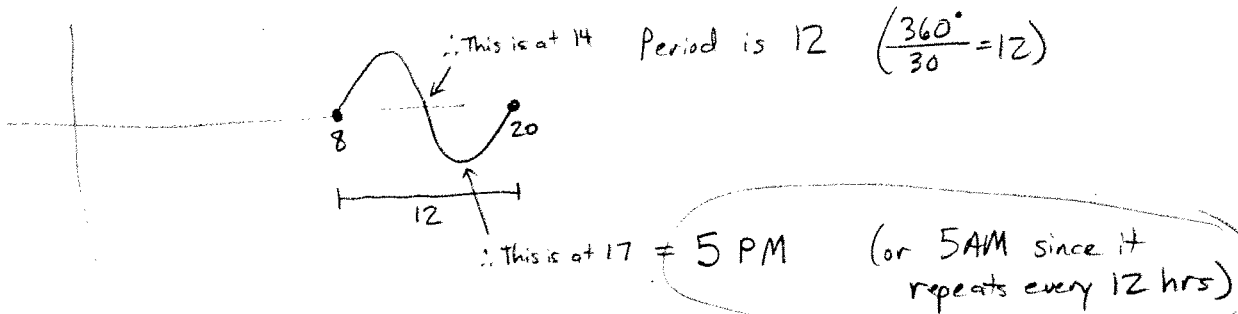 ∴ This is at 14 Period is 12 (360°/30 = 12)
8
20
12
∴ This is at 17 = 5 PM (or 5AM since it
repeats every 12 hrs)